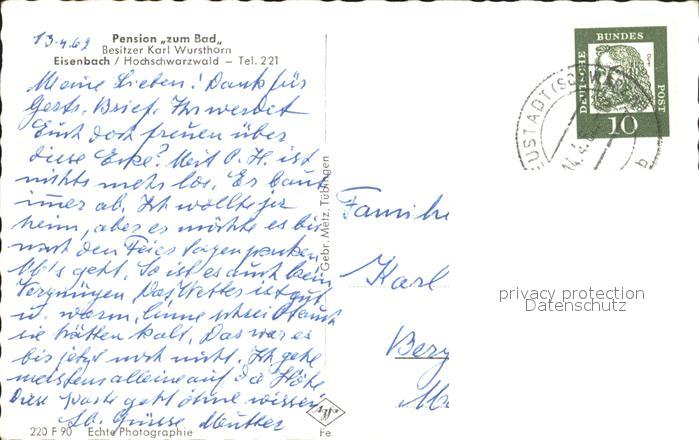 13.4.62
Pension „zum Bad"
Besitzer Karl Wursthorn
Eisenbach / Hochschwarzwald – Tel. 221
Meine Lieben! Dank für
Gerts. Brief. Ihr werdet
Euch doch freuen über
diese Ecke? Mit O. H. ist
nichts mehr los. Er baut
immer ab. Ich wollte ja
heim, aber es möchte es bis
nach den Feier tagen
geht. So ist es auch kein
Vergnügen. Das Wetter ist gut
u. warm,
sie hätten kalt. Das war es
bis jetzt noch nicht. Ich gehe
meistens alleine auf die Höhe
Diese Karte geht ohne wissen
Lb. Grüsse Mutter
220 F 90 Echte Photographie
Gebr. Metz, Tübingen
Fe
DEUTSCHE BUNDES POST
10
14.4.6
b
Familie
Karl
Berg
privacy protection
Datenschutz